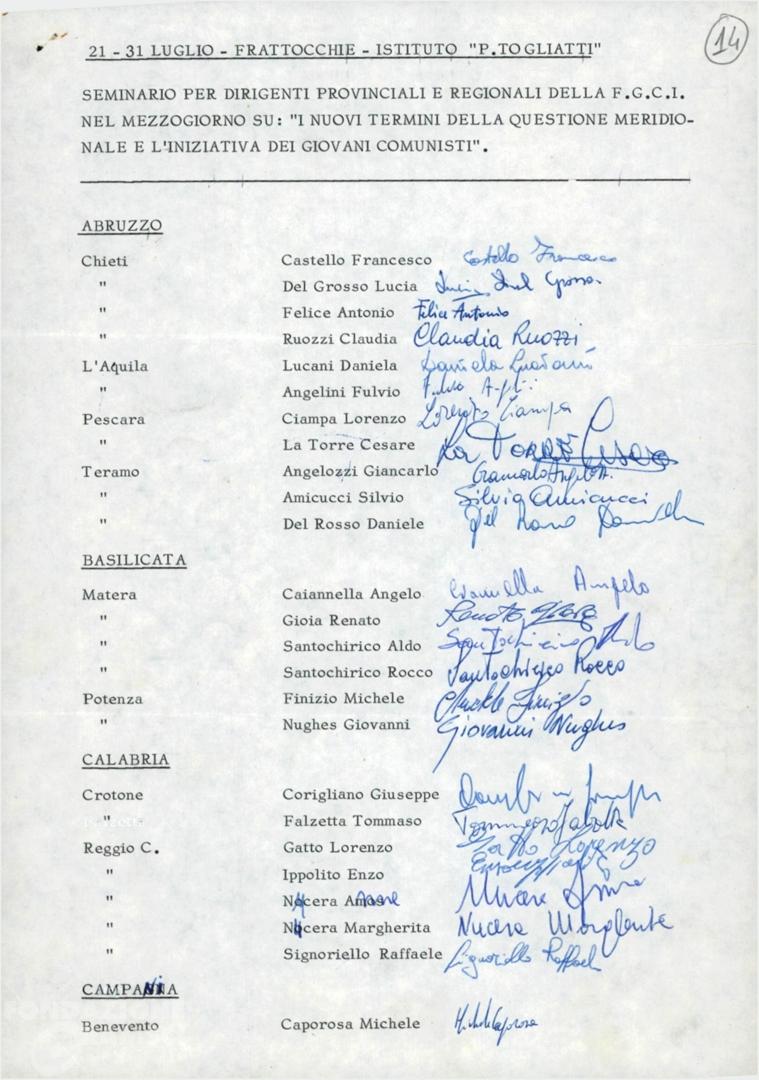 14
21 - 31 LUGLIO - FRATTOCCHIE - ISTITUTO "P.TOGLIATTI"
SEMINARIO PER DIRIGENTI PROVINCIALI E REGIONALI DELLA F.G.C.I.
NEL MEZZOGIORNO SU: "I NUOVI TERMINI DELLA QUESTIONE MERIDIO-
NALE E L'INIZIATIVA DEI GIOVANI COMUNISTI".
ABRUZZO
Chieti Castello Francesco Castello Francesco
" Del Grosso Lucia Lucia Del Grosso
" Felice Antonio Felice Antonio
" Ruozzi Claudia Claudia Ruozzi
L'Aquila Lucani Daniela Daniela
" Angelini Fulvio Fulvio
Pescara Ciampa Lorenzo Lorenzo Ciampa
" La Torre Cesare La Torre Cesare
Teramo Angelozzi Giancarlo Giancarlo
" Amicucci Silvio Silvio Amicucci
" Del Rosso Daniele Del Rosso Daniele
BASILICATA
Matera Caiannella Angelo Angelo
" Gioia Renato Renato Gioia
" Santochirico Aldo Santochirico Aldo
" Santochirico Rocco Santochirico Rocco
Potenza Finizio Michele Michele Finizio
" Nughes Giovanni Giovanni Nughes
CALABRIA
Crotone Corigliano Giuseppe
" Falzetta Tommaso Tommaso Falzetta
Reggio C. Gatto Lorenzo Gatto Lorenzo
" Ippolito Enzo
" Nucera Nucera
" Nucera Margherita Nucera Margherita
" Signoriello Raffaele Signoriello Raffaele
CAMPANIA
Benevento Caporosa Michele Michele Caporosa